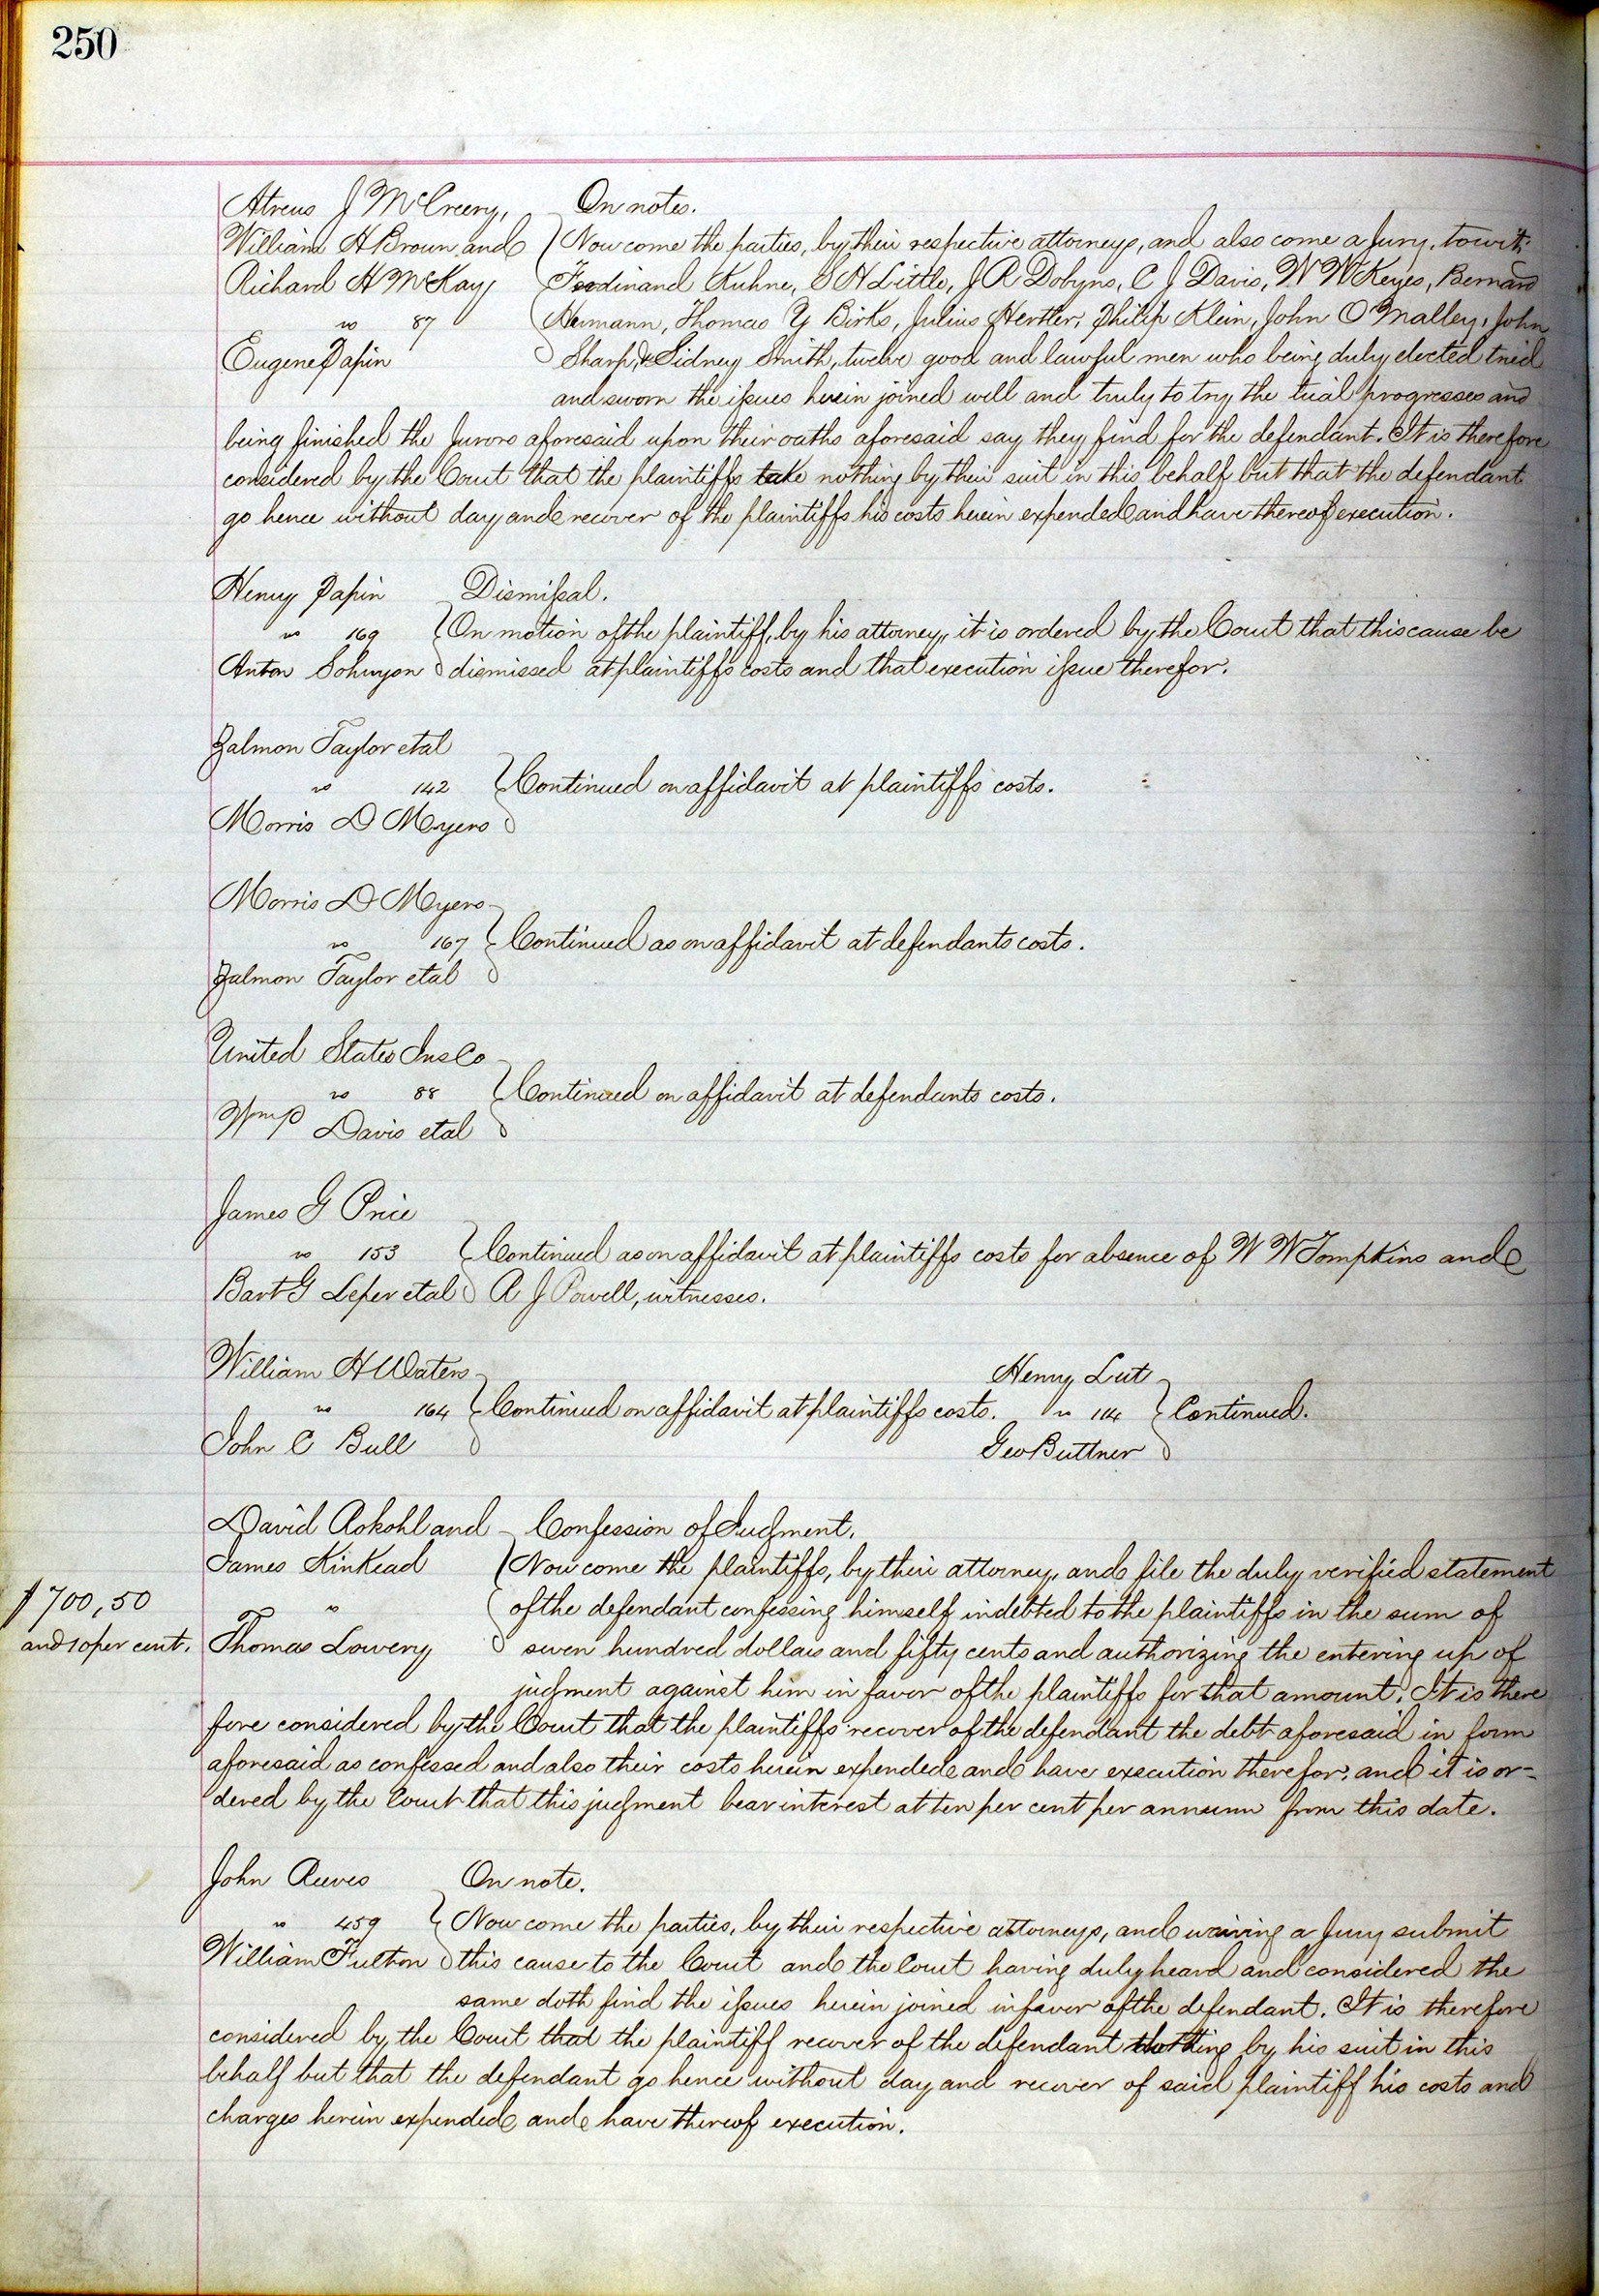 250
Atreus J McCreery, On notes.
William H Brown and Now come the parties, by their respective attorneys, and also come a Jury, towit:
Richard H McKay Ferdinand Kuhne, S H Little, J R Dobyns, C J Davis, W W Keyes, Bernard
vs 87 Hermann, Thomas Y Birks, Julius Hertler, Philip Klein, John O'Malley, John
Eugene Papin Sharp, & Sidney Smith, twelve good and lawful men who being duly elected tried
and sworn the issues herein joined well and truly to try the trial progresses and
being finished the Jurors aforesaid upon their oaths aforesaid say they find for the defendant. It is therefore
considered by the Court that the plaintiffs take nothing by their suit in this behalf but that the defendant
go hence without day and recover of the plaintiffs his costs herein expended and have thereof execution.
Henry Papin Dismissal.
vs 169 On motion of the plaintiff, by his attorney, it is ordered by the Court that this cause be
Anton dismissed at plaintiffs costs and that execution issue therefor.
Zalmon Taylor etal
vs 142 Continued on affidavit at plaintiffs costs.
Morris D Myers
Morris D Myers
vs 167 Continued as on affidavit at defendants costs.
Zalmon Taylor etal
United States Ins Co
vs 88 Continued on affidavit at defendants costs.
Wm P Davis etal
James G Price
vs 153 Continued as on affidavit at plaintiffs costs for absence of W W Tompkins and
Bart G Leper etal A J Powell, witnesses.
William H Waters Henry Lut
vs 164 Continued on affidavit at plaintiffs costs. vs 114 Continued.
John C Bull Geo Buttner
David Rokohl and Confession of Judgment.
James Kinkead Now come the plaintiffs, by their attorney, and file the duly verified statement
$700,50 vs of the defendant confessing himself indebted to the plaintiffs in the sum of
and 10 per cent. Thomas Lowery seven hundred dollars and fifty cents and authorizing the entering up of
judgment against him in favor of the plaintiffs for that amount. It is there
fore considered by the Court that the plaintiffs recover of the defendant the debt aforesaid in form
aforesaid as confessed and also their costs herein expended and have execution therefor, and it is or-
dered by the Court that this judgment bear interest at ten per cent per annum from this date.
John Reeves On note.
vs 459 Now come the parties, by their respective attorneys, and waiving a Jury submit
William Fulton this cause to the Court and the Court having duly heard and considered the
same doth find the issues herein joined in favor of the defendant. It is therefore
considered by the Court that the plaintiff recover of the defendant nothing by his suit in this
behalf but that the defendant go hence without day and recover of said plaintiff his costs and
charges herein expended and have thereof execution.